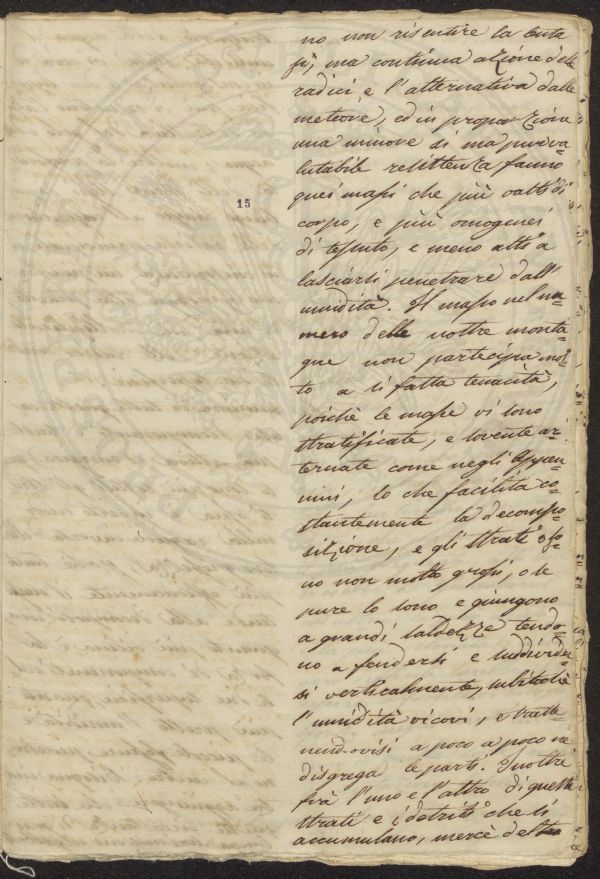 no non risentire la lenta
sì, ma continua azione delle
radici e l'alternativa dalle
meteore, ed in proporzione
una minore sì ma pur va-
lutabile resistenza fanno
quei massi che più vasti di
corpo, e più omogenei
di tessuto, e meno atti a
lasciarsi penetrare dall'
umidità. Il masso nel nu-
mero delle nostre monta-
gne non partecipa mol-
to a sì fatta tenacità,
poichè le masse vi sono
15
stratificate, e sovente al-
ternate come negli Appen-
nini, lo che facilita co-
stantemente la decompo-
sizione, e gli strati o so-
no non molto grossi, o se
pure lo sono e giungono
a grandi saldezze tendo-
no a fendersi e suddivider-
si verticalmente, subitochè
l'umidità vicovi, e tratte-
nend-ovisi a poco a poco ne
disgrega le parti. Inoltre
frà l'uno e l'altro di questi
strati e i detriti che si
accumulano, mercè del